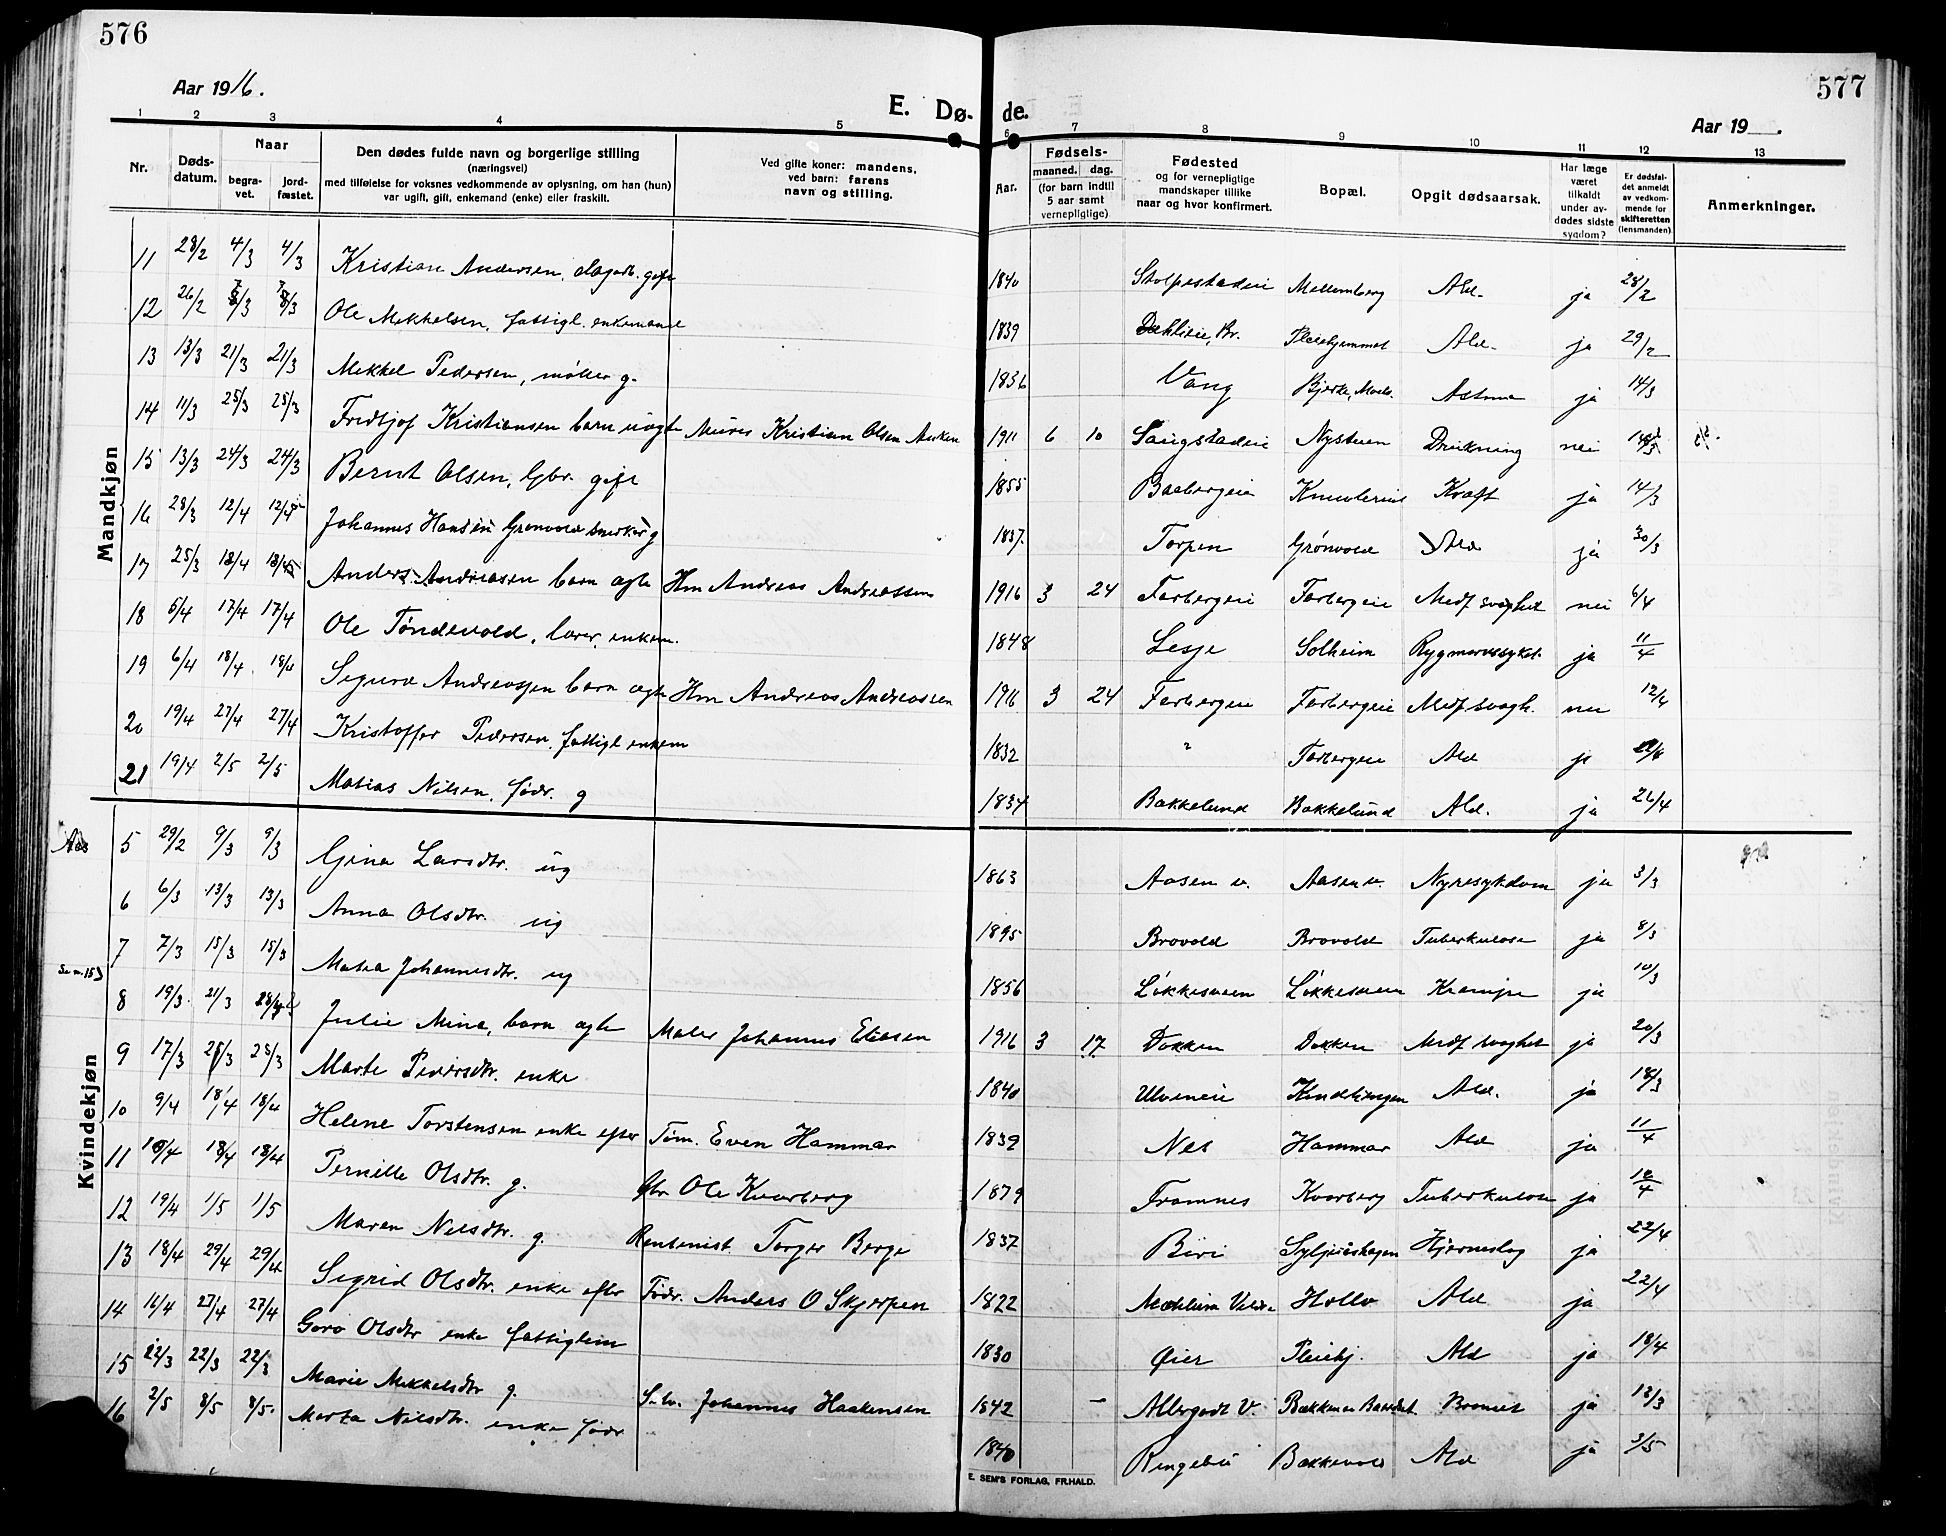 576
577
Aar 1916.
Aar 19 .
E. Dø- de.
1 2 3 4 5 6 7 8 9 10 11 12 13
Nr.
Døds-datum.
Naar
begra-vet.
jord-fæstet.
Den dødes fulde navn og borgerlige stilling
(næringsvei)
med tilføielse for voksnes vedkommende av oplysning, om han (hun)
var ugift, gift, enkemand (enke) eller fraskilt.
Ved gifte koner: mandens,
ved barn: farens
navn og stilling.
Aar.
Fødsels-
maaned. dag.
(for barn indtil
5 aar samt
vernepligtige)
Fødested
og for vernepligtige
mandskaper tillike
naar og hvor konfirmert.
Bopæl.
Opgit dødsaarsak.
Har læge
været
tilkaldt
under av-
dødes sidste
sygdom?
Er dødsfal-
det anmeldt
av vedkom-
mende for
skifteretten
(lensmanden).
Anmerkninger.
Mandkjøn
11 28/2 4/3 4/3 Kristian Andersen, dagarb. gift 1840 Stolpestadeie Mellemberg Ald. ja 28/2
12 26/2 Ole Mikkelsen, fattigl. enkemand 1839 Dæhlieie, Br. Pleiehjemmet Ald. ja 29/2
13 13/3 21/3 21/3 Mikkel Pedersen, møller g. 1836 Vang Bjerke, Moelv. Astma ja 14/3
14 11/3 25/3 25/3 Fredtjof Kristiansen barn uægte Murer Kristian Olsen 1911 6 10 Saugstadeie Nystuen Drukning nei
15 13/3 24/3 24/3 Bernt Olsen, Gbr. gift 1855 Baabergeie Kræft ja 14/3
16 28/3 12/4 12/4 Johannes Hansen Grønvold snekker g 1837. Torpen Grønvold Ald ja 30/3
17 25/3 18/4 18/4 Anders Andreasen barn ægte Hm Andreas Andreassen 1916 3 24 Farbergeie Farbergeie Medf svaghet nei 6/4
18 5/4 17/4 17/4 Ole Tøndevold, lærer, enkem. 1848 Lesje Solheim Rygmarvssykd. ja 11/4
19 6/4 18/4 18/4 Sigurd Andreassen barn ægte Hm Andreas Andreassen 1916 3 24 Farbergeie Farbergeie Medf svagh. nei 12/4
20 19/4 27/4 27/4 Kristoffer Pedersen, fattigl enkem 1832 " Farbergeie Ald ja
21 19/4 2/5 2/5 Matias Nilsen, fødr. g 1834 Bakkelund Bakkelund Ald. ja 26/4
Kvindekjøn
Aas 5 29/2 9/3 9/3 Gina Larsdtr. ug 1863 Aasen v. Aasen v. Nyresykdom ja 3/3
6 6/3 13/3 13/3 Anna Olsdtr. ug 1895 Brovold Brovold Tuberkulose ja 8/3
7 7/3 15/3 15/3 Matea Johannesdtr. ug 1856 Løkkesveen Løkkesveen Krampe ja 10/3
8 19/3 21/3 Julie Mina, barn ægte Maler Johannes Eliasen 1916 3 17 Dokken Dokken Medf svaghet ja 20/3
9 17/3 25/3 25/3 Marte Pedersdtr. enke 1840 Ulveneie Ald. ja 18/3
10 9/4 18/4 18/4 Helene Torstensen enke efter Tøm. Even Hammar 1839 Nes Hammar Ald ja 11/4
11 18/4 18/4 Pernille Olsdtr. g. Gbr. Ole Kvarberg 1879 Framnes Kvarberg Tuberkulose ja
12 19/4 1/5 1/5 Maren Nilsdtr. g. Rentenist Torger Berge 1837 Biri Syljuhaugen Hjerneslag ja 22/4
13 18/4 29/4 29/4 Sigrid Olsdtr. enke efter Fødr. Anders O Skjerpen 1822 Mæhlum Veldr. Ald ja 22/4
14 16/4 27/4 27/4 Goro Olsdtr enke fattiglem 1830 Øier Pleiehj. Ald ja 18/4
15 22/3 22/3 Marie Mikkelsdtr g. Johannes Haakensen 1842 – Allergodt V. Bronkit ja 13/3
16 2/5 8/5 8/5. Marta Nilsdtr. enke fødr 1840 Ringebu Bakkevold Ald ja 3/5
E. SEM'S FORLAG, FR.HALD.